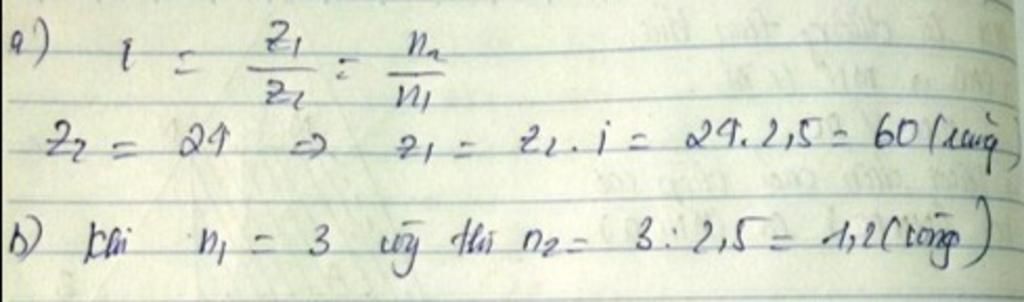 a) i = Z1/Z2 = n2/n1
Z2 = 24 => Z1 = Z2 . i = 24 . 2,5 = 60 (răng
b) khi n1 = 3 vòng thì n2 = 3 : 2,5 = 1,2 (vòng)